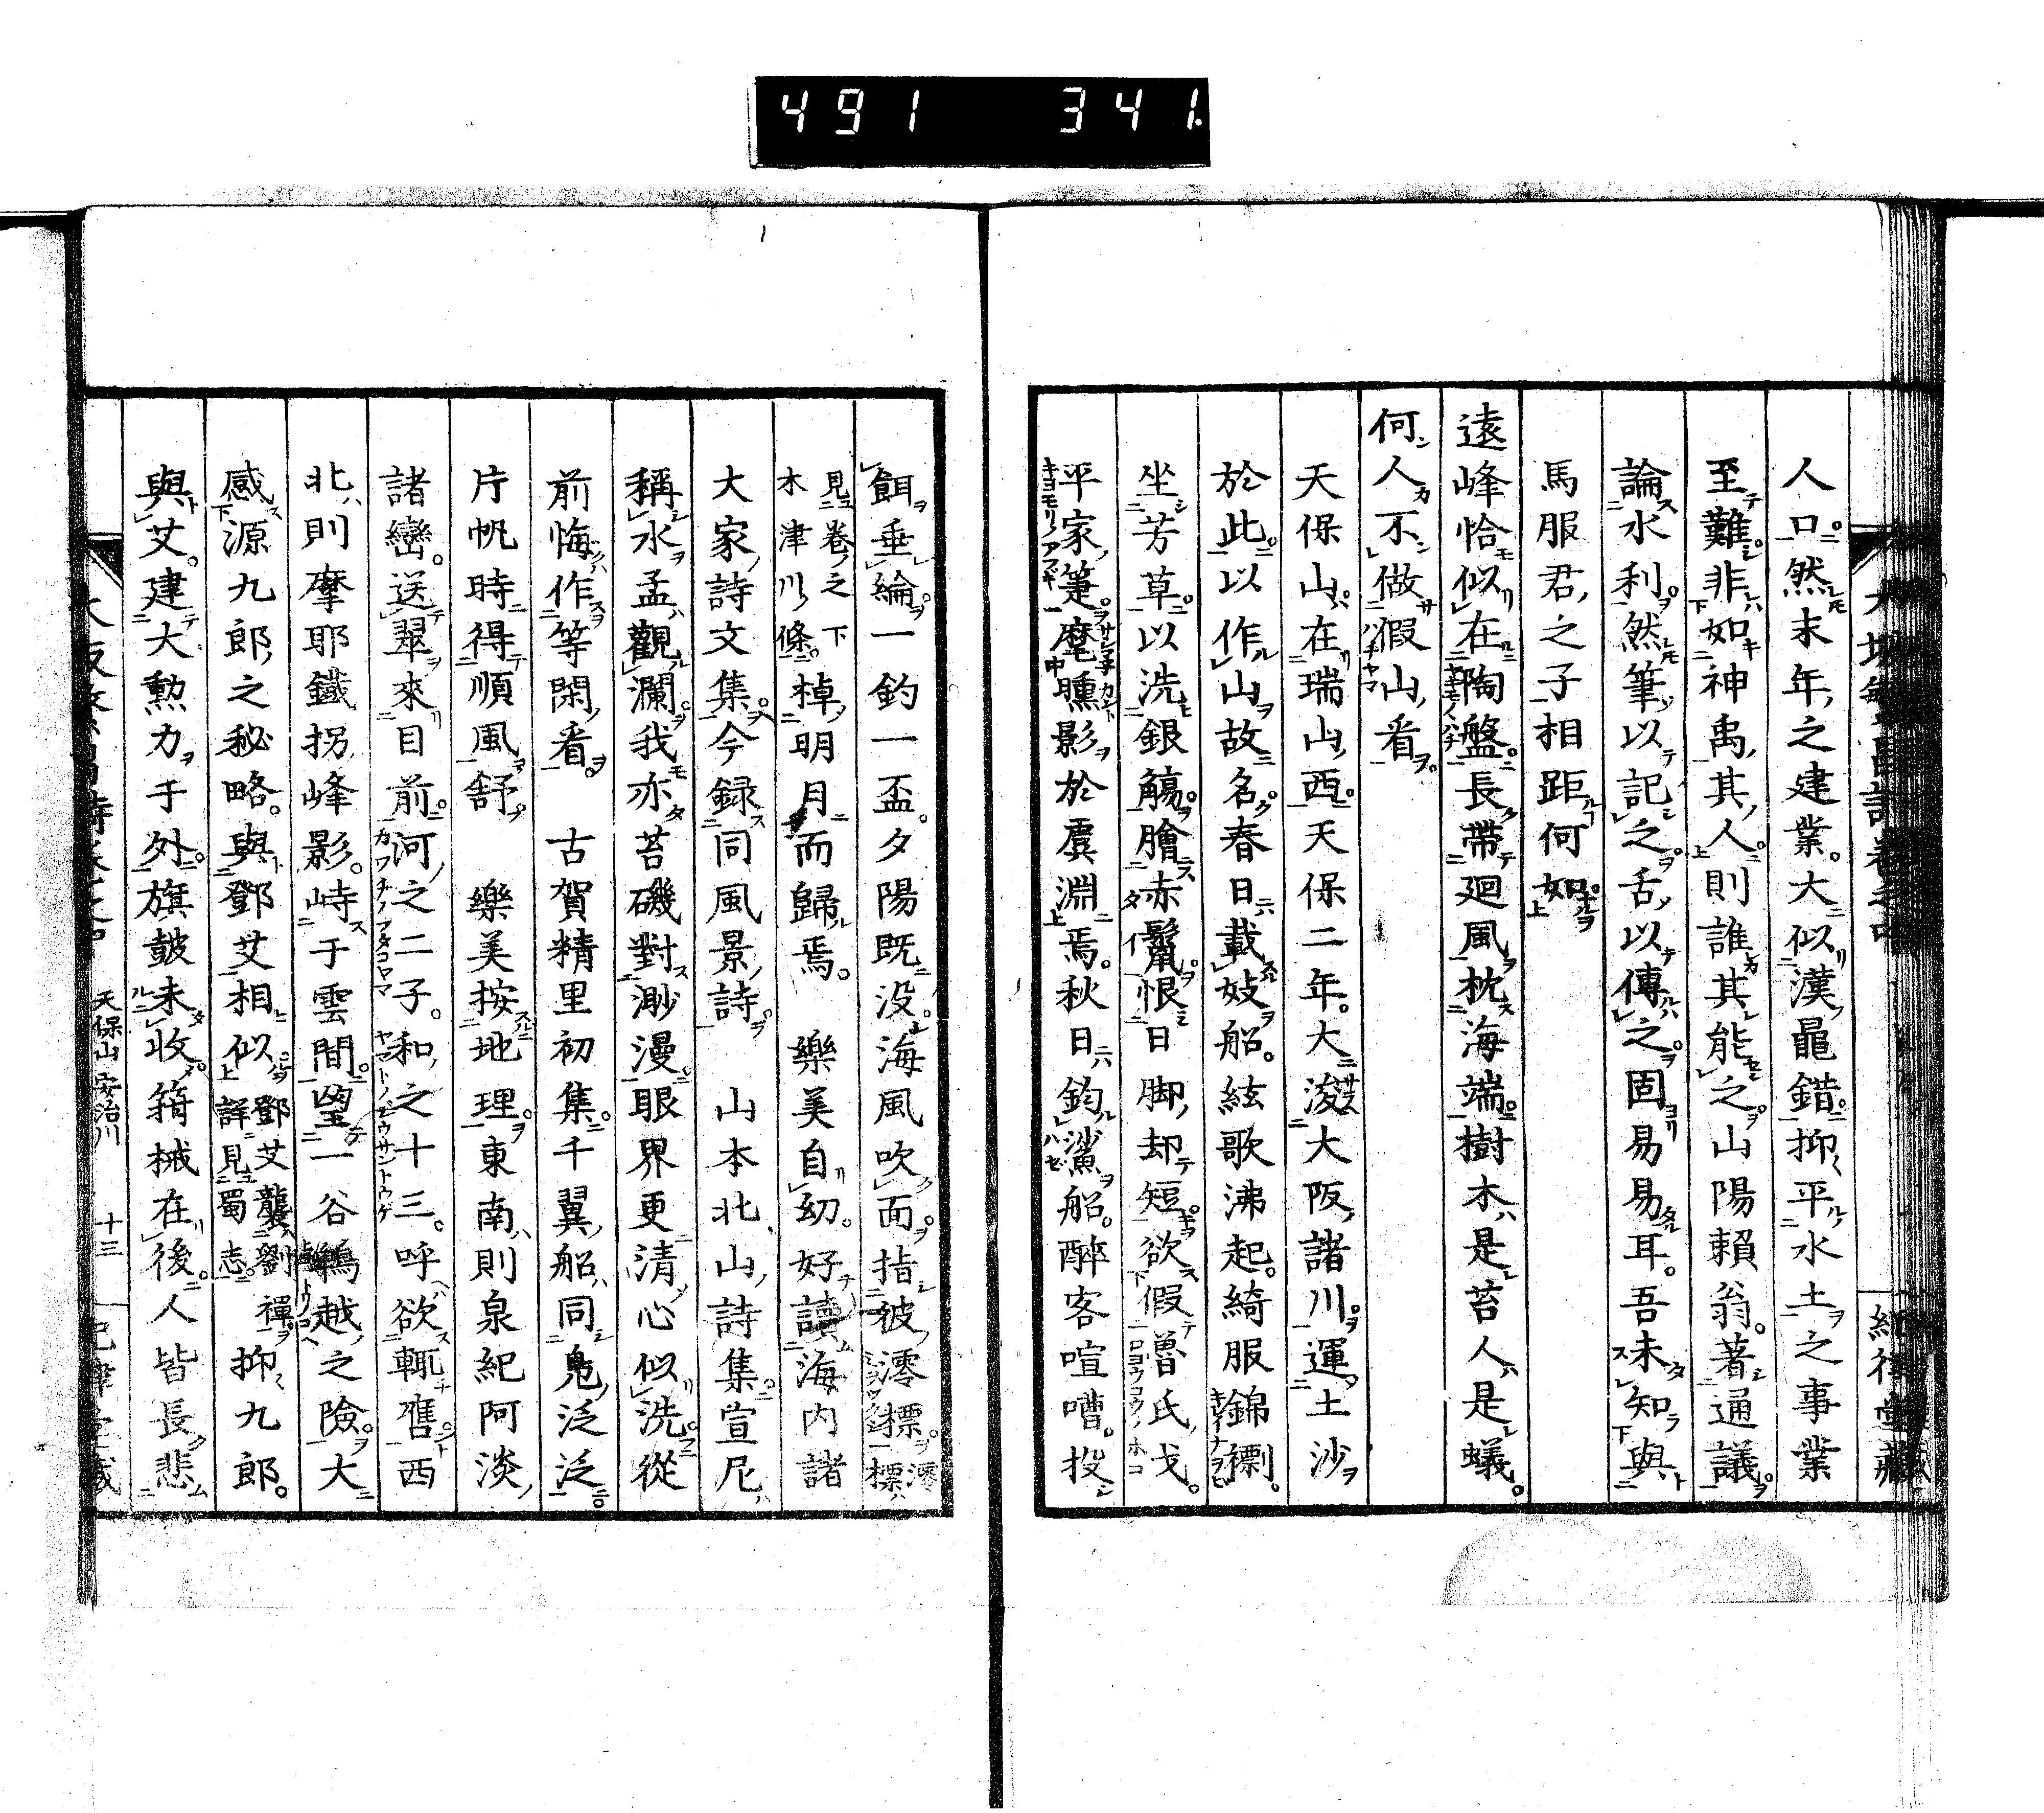 491 341
人口然末年之建業。大似漢鼂錯抑平水土之事業
至難非如神禹其人則誰其能之山陽賴翁。著通議
論水利然筆以記之舌以傳之固易易耳。吾未知與
馬服君之子相距何如
遠峰恰似在陶盤長帶廻風枕海端樹木是苔人是蟻。
何人不做假山看
天保山在瑞山西天保二年。大浚大阪諸川運土沙
於此以作山故名春日載妓船。絃歌沸起。綺服錦䙜。
坐芳草以洗銀觴膾赤鬣恨日脚却短欲假魯氏戈。
平家箑麾曛影於虞淵焉。秋日鈎鯊船。醉客喧嘈。投
餌垂綸一釣一盃。夕陽既没。海風吹面指彼澪標澪標ハ
見卷之下木津川條棹明月而歸焉。樂美自幼。好讀海内諸
大家詩文集今録同風景詩 山本北山詩集宣尼
稱水孟觀瀾我亦苔磯對渺漫眼界更清心似洗從
前悔作等閑看 古賀精里初集千翼船同鳬泛泛
片帆時得順風舒 樂美按地理東南則泉紀阿淡
諸巒。送翠來目前河之二子。和之十三。呼欲輒譍西
北則摩耶鐵拐峰影。峙于雲間望一谷鵯越之險大
感源九郎之秘略。與鄧艾相似鄧艾襲劉禪詳見蜀志 抑九郎。
與艾。建大勲力于外旗鼓未收箱械在後人皆長悲
天保山 安治川 十三